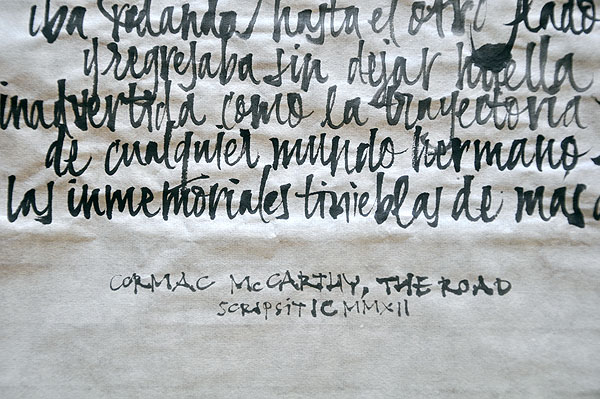 iba rodando/hasta el otro lado
y regresaba sin dejar huella
inadvertida como la trayectoria
de cualquier mundo hermano
las inmemoriales tinieblas de más
CORMAC McCARTHY, THE ROAD
SCRIPSIT IC MMXII